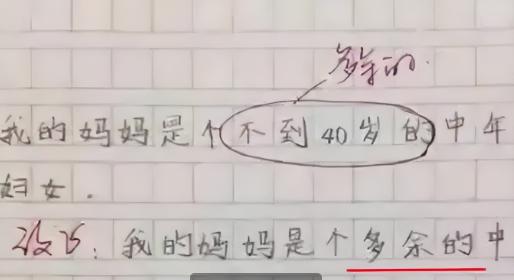 多余的.
我的妈妈是个不到40岁的中年
妇女.
改为:我的妈妈是个多余的中